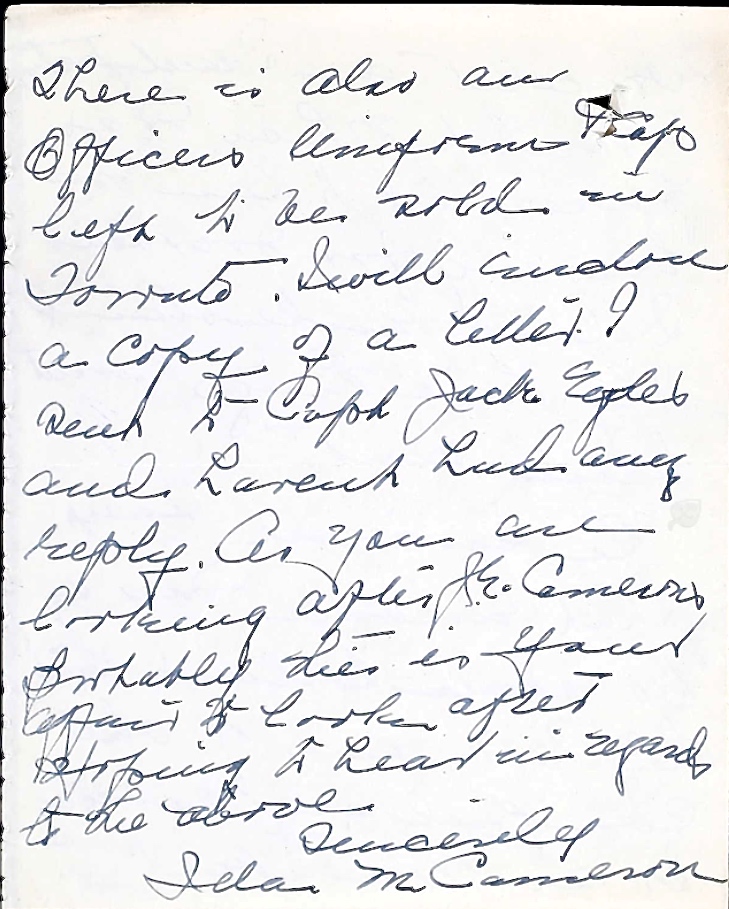 There is also an
Officers Uniform Kaps
left to be sold in
Toronto. I will inclose
a copy of a letter I
sent to Capt Jack Eyles
and havent had any
reply. As you are
looking after J.E. Camerons
probably this is your
affair to look after
Hoping to hear in regards
to the above
Sincerely
Ida M Cameron